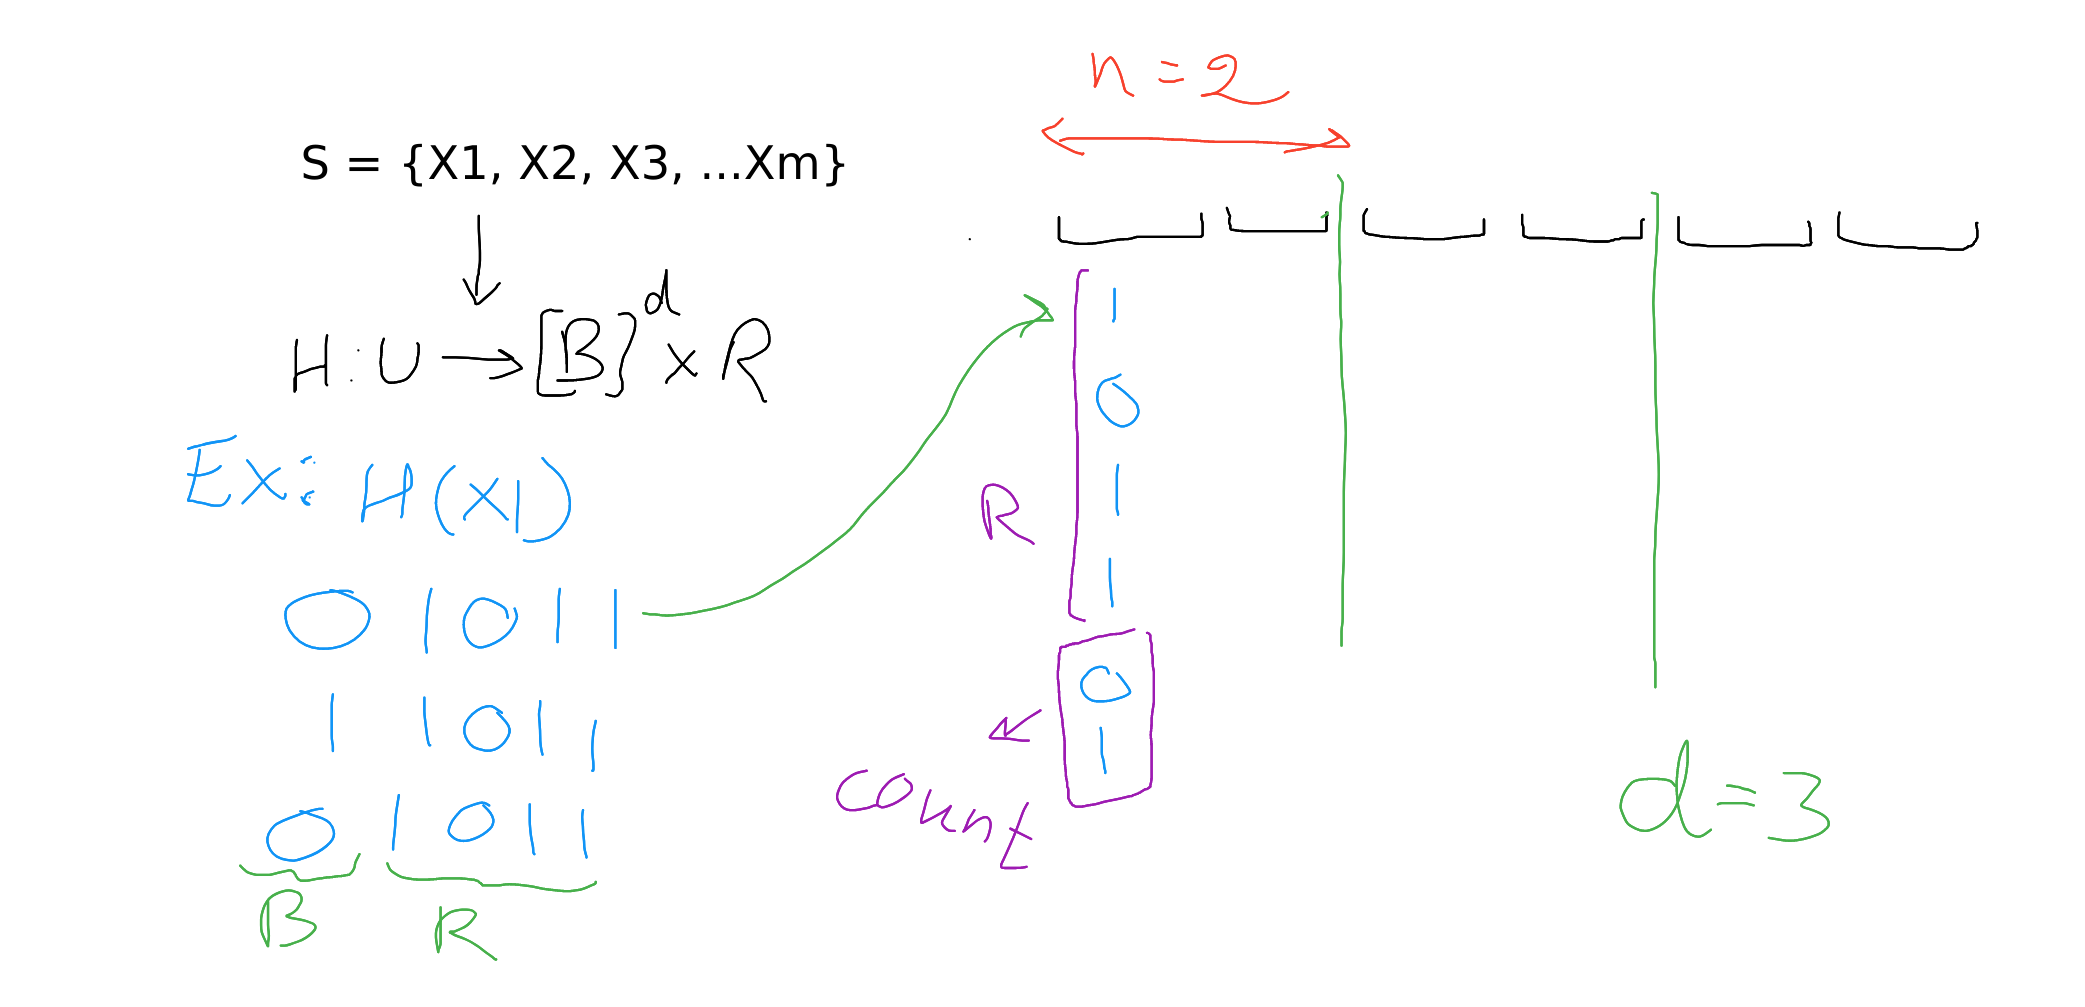 n = 2
S = {X1, X2, X3, ...Xm}
H : U → [B]^d x R
Ex: H(X1)
0 1 0 1 1
1 1 0 1 1
0 1 0 1 1
B R
R
1
0
1
1
0
1
count
d = 3